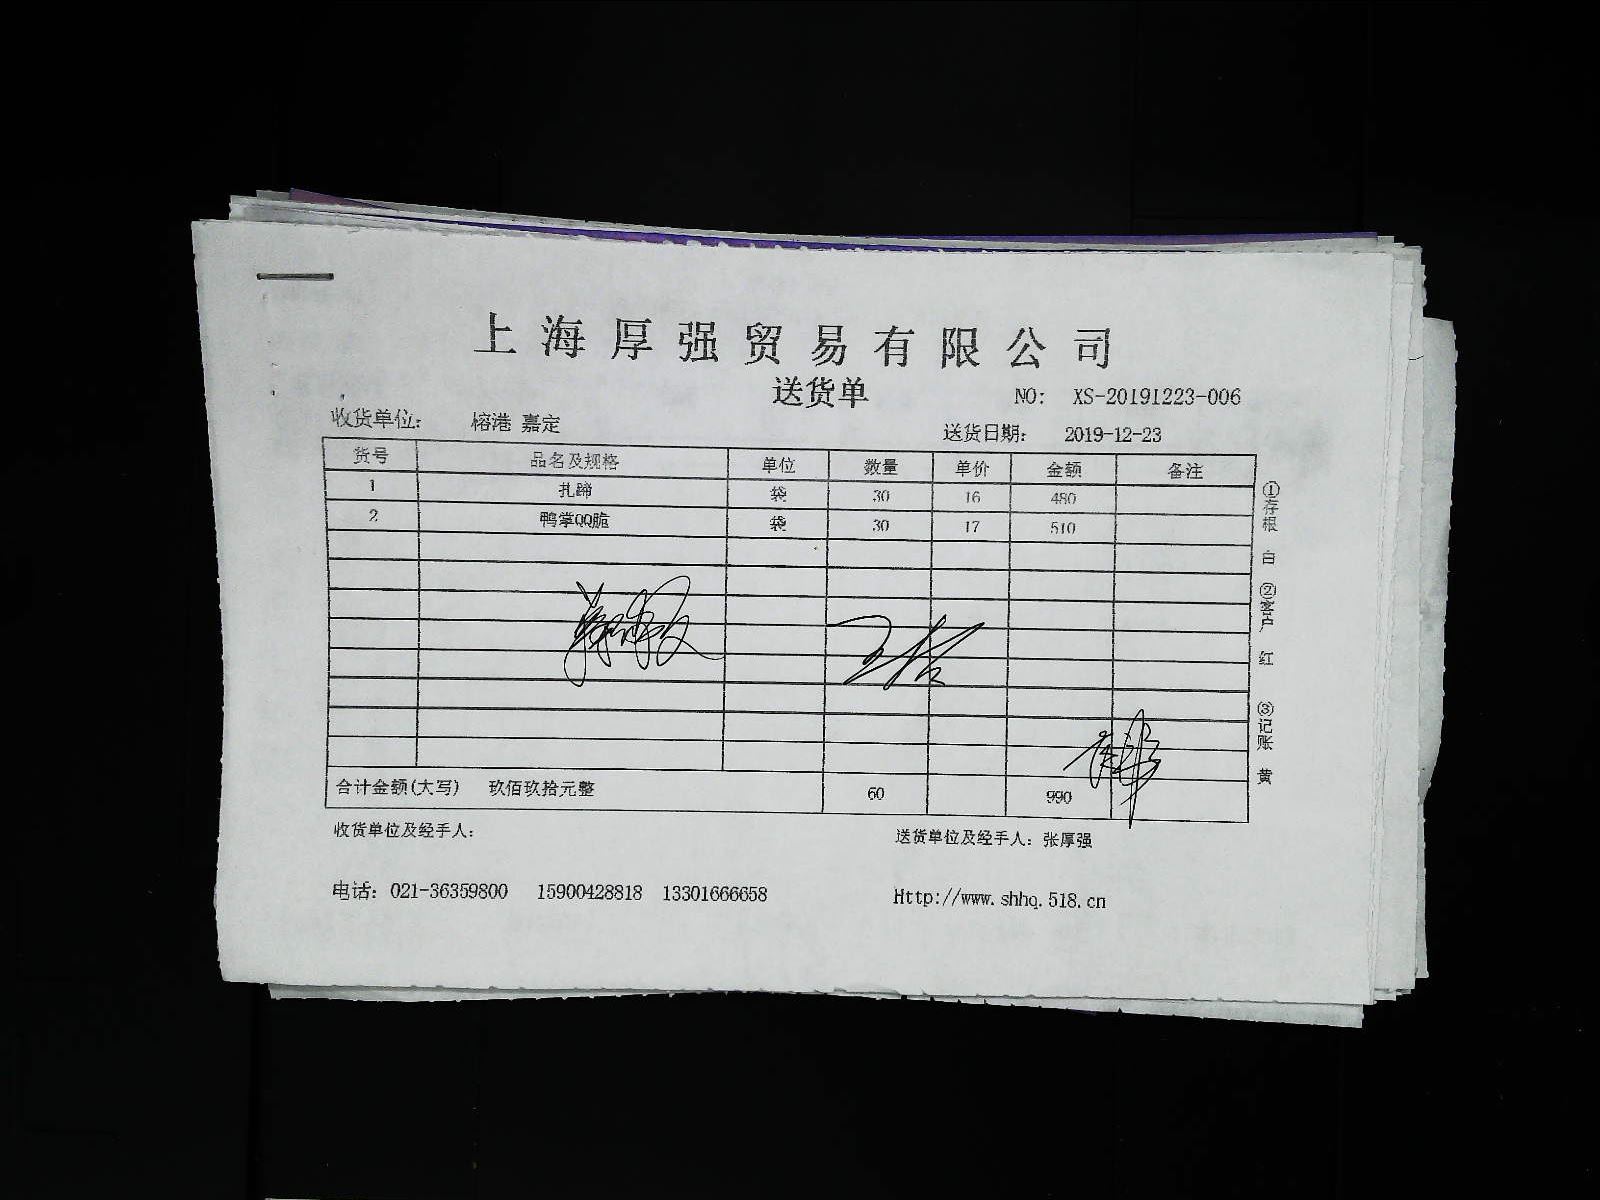 上海厚强贸易有限公司
送货单
NO: XS-20191223-006
收货单位: 榕港 嘉定
送货日期: 2019-12-23
货号 品名及规格 单位 数量 单价 金额 备注
1 扎蹄 袋 30 16 480
2 鸭掌QQ脆 袋 30 17 510
合计金额(大写) 玖佰玖拾元整 60 990
收货单位及经手人:
送货单位及经手人: 张厚强
电话: 021-36359800 15900428818 13301666658
Http://www.shhq.518.cn
①存根 白 ②客户 红 ③记账 黄